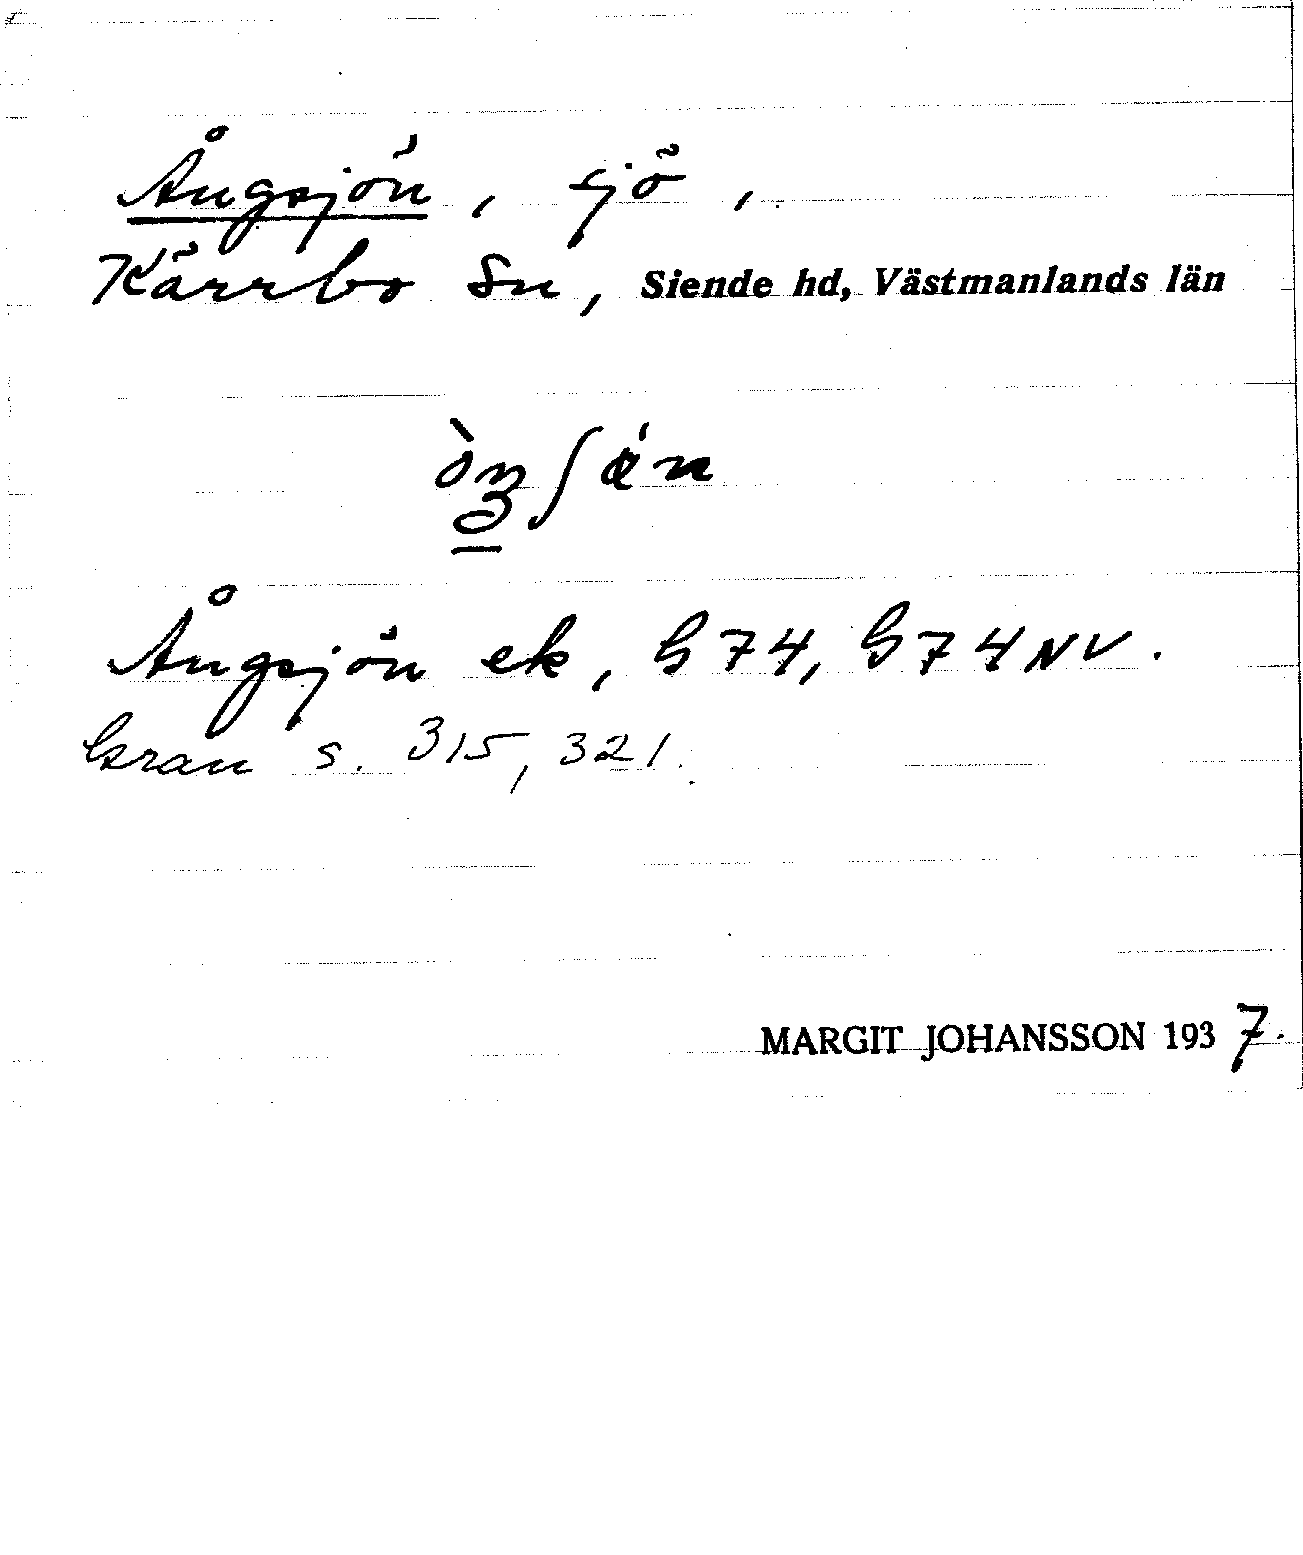 Ångsjön, sjö,
Kärrbo Sn, Siende hd, Västmanlands län
Ångsjön ek, G 74, G 74 NV.
Gran s. 315, 321.
MARGIT JOHANSSON 1937.